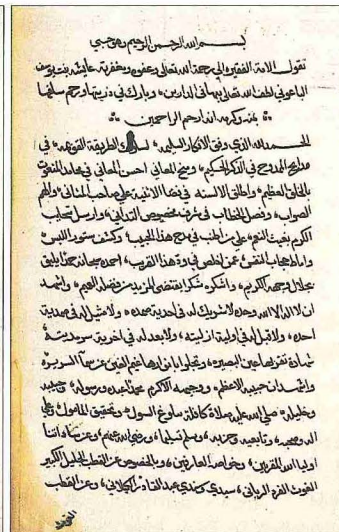 بسم الله الرحمن الرحيم وهو حسبي
تقول الامة الفقيرة الى رحمة الله تعالى وعفوه ومغفرته عايشه بنت يوسف
الباعوني لطف الله تعالى بها في الدارين، وبارك في ذريتها ورحم سلفها
بمنه وكرمه انه ارحم الراحمين
الحمد لله الذي وفق الافكار السليمة، لسلوك الطريقة القويمة، في
مدايح الممدوح في الذكر الحكيم، ومنح المعاني احسن المعاني في محامد المنعوت
بالخلق العظيم، واطلق الالسنه في فضا الاثنيه على صاحب المثاني، والهم
الصواب، وفصل الخطاب في مخصوص التداني، وارسل سحايب
الكرم بغيث النعم، على من اطنب في مدح هذا الحبيب، وكشف ستور اللبس
واماط حجاب النفس عن اخلص في هذا القريب، احمده حمدا يليق
بجلال وجهه الكريم، واشكره شكرا يقتضي المزيد من فضله العميم، واشهد
ان لا اله الا الله وحده لا شريك له في احدية، ولا مثل له في صمدية
احده، ولا قبل له في اولية ازليته، ولا بعد له في اخرية سرمديته
شهادة تقر بها عين البصيره، وتجلو غيم الغين عن سما السريره
واشهد ان حبيبه الاعظم، ووجيهه الاكرم محمدا عبده ورسوله، وحبيبه
وخليله، صلى الله عليه صلاة كافلة ببلوغ السول، وتحقيق المامول، وعلى
اله وصحبه، وتابعيه وحزبه، وسلم تسليما، ورضي الله عنهم، وعن ساداتنا
اوليا الله المقربين، وخواصه العارفين، وبالخصوص عن القطب الجليل الكبير
الغوث الفرد الرباني، سيدي وسندي عبد القادر الكيلاني، وعن القطب